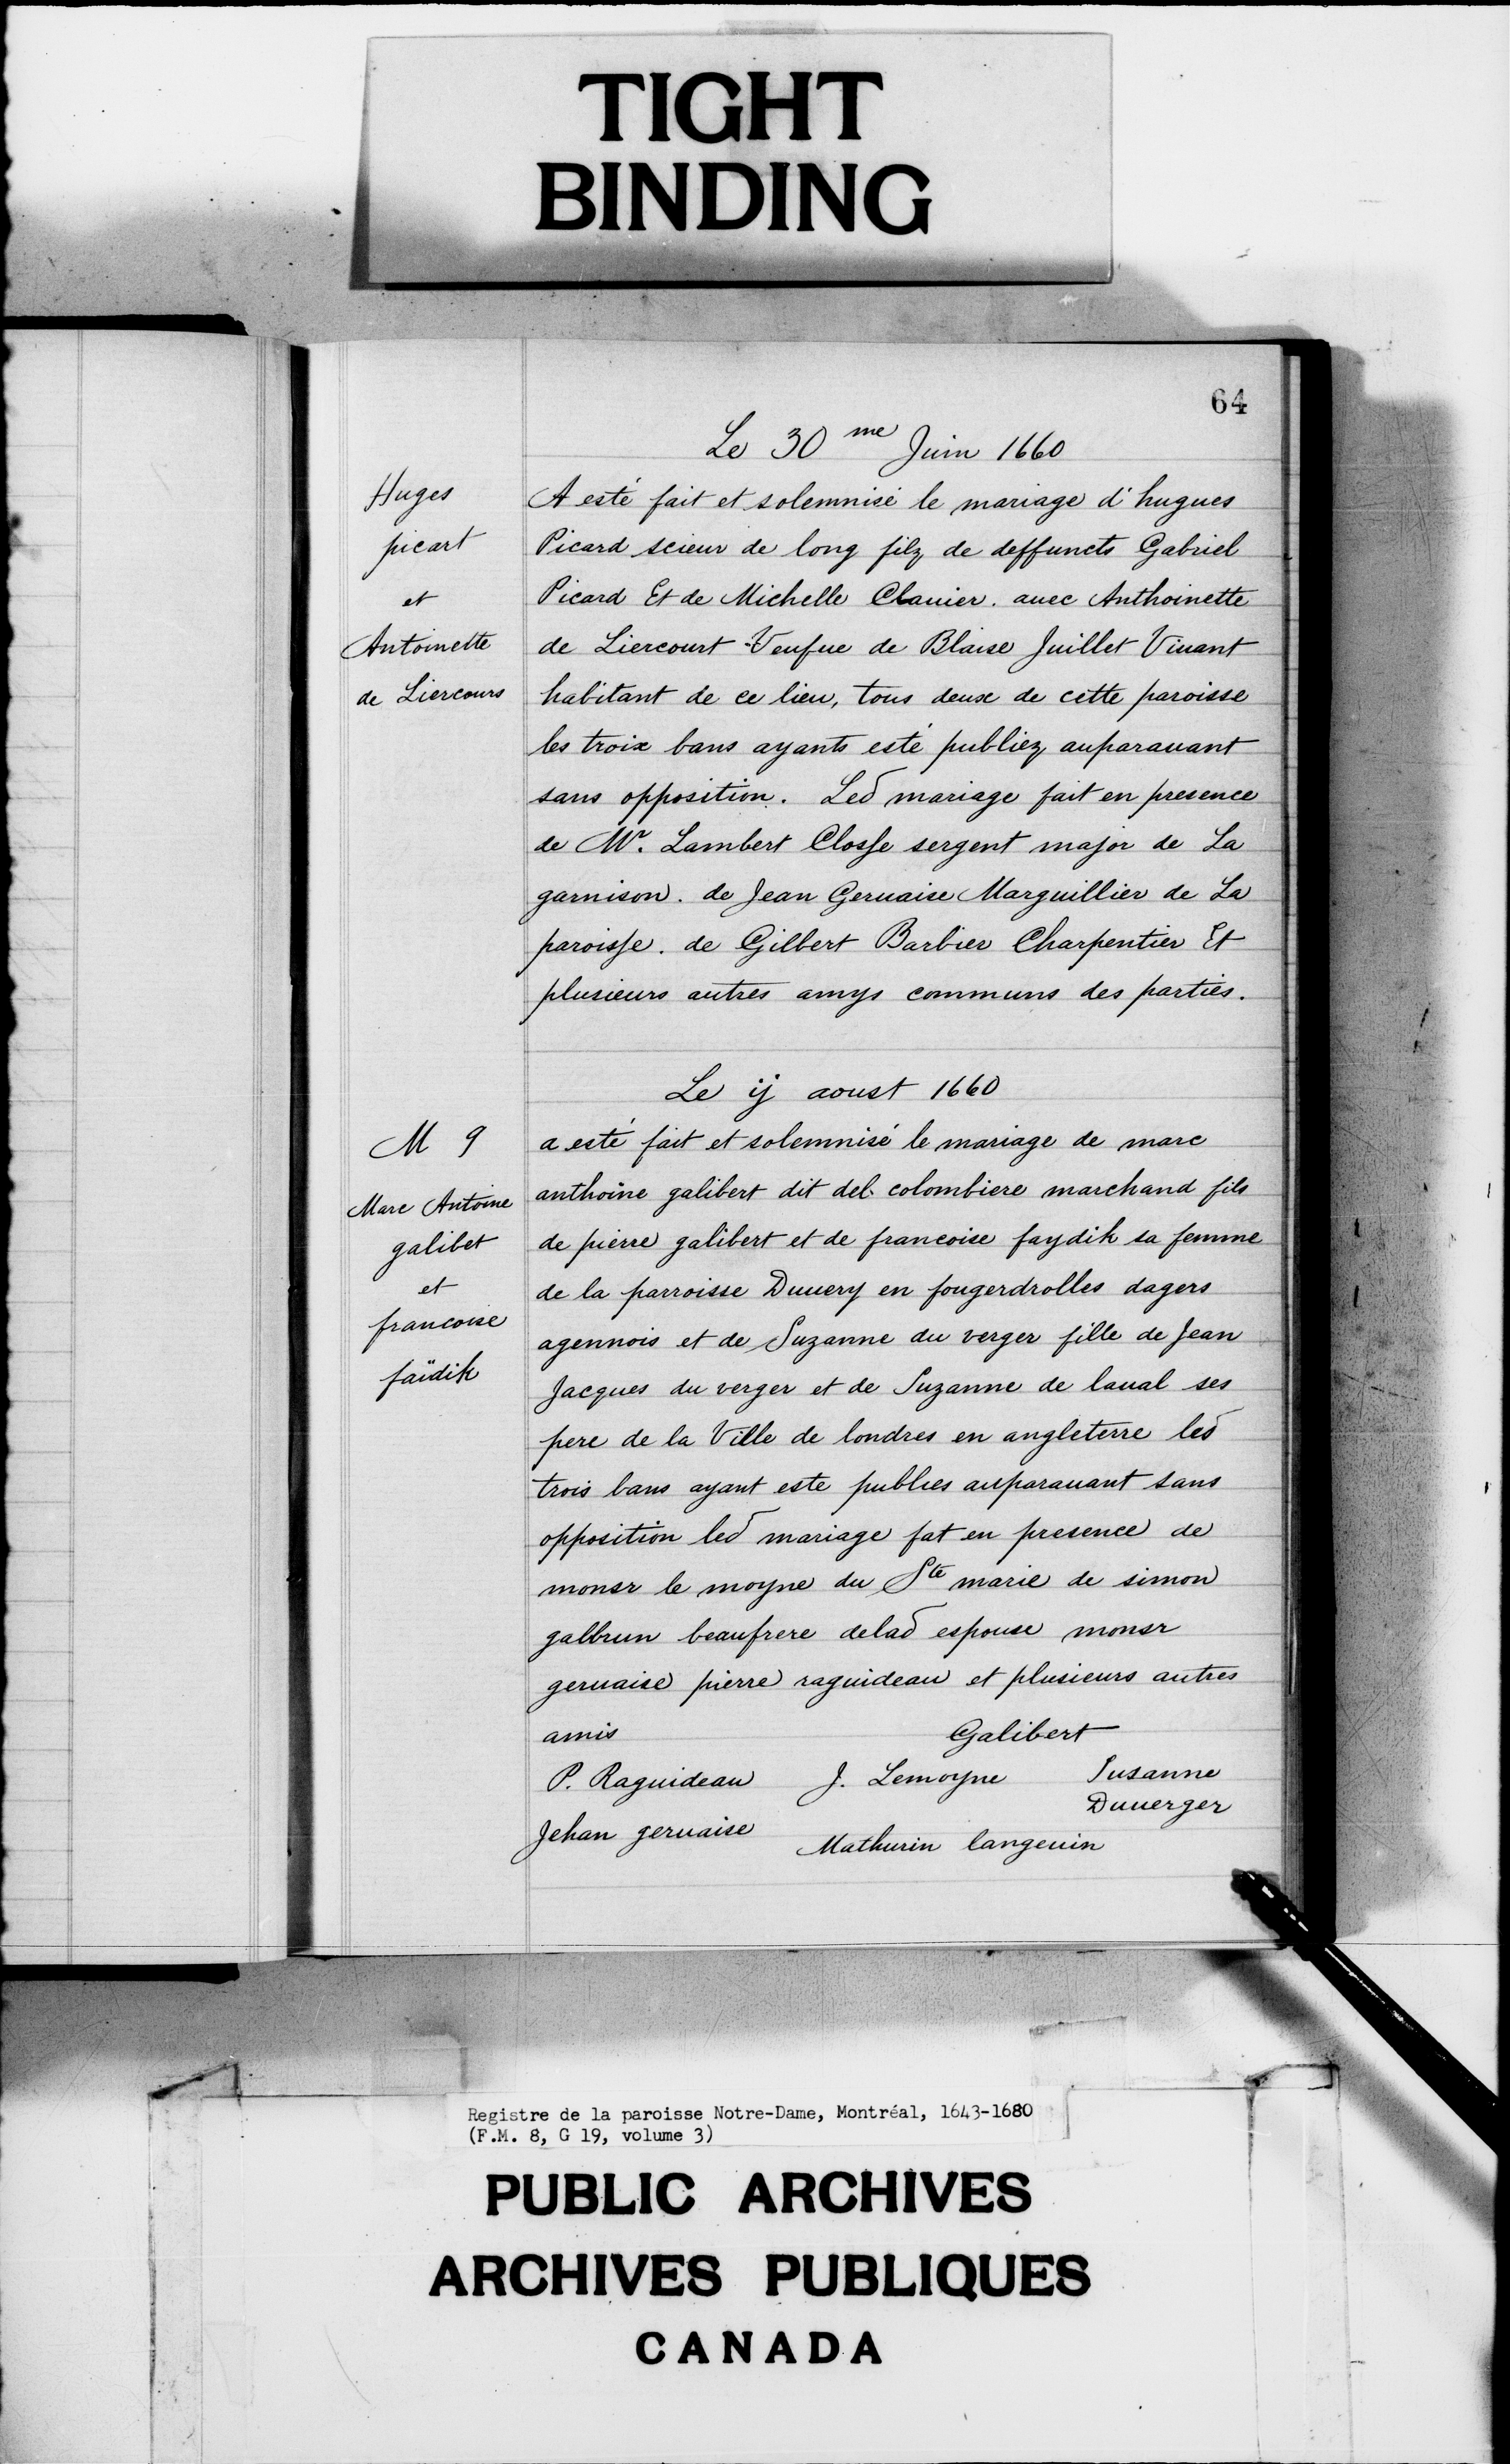 TIGHT
BINDING
64
Le 30 me Juin 1660
Huges
picart
et
Antoinette
de Liercours
A esté fait et solemnisé le mariage d'hugues
Picard scieur de long filz de deffuncts Gabriel
Picard Et de Michelle Clauier. auec Anthoinette
de Liercourt Veufue de Blaise Juillet Viuant
habitant de ce lieu, tous deux de cette paroisse
les troix bans ayants esté publiez auparauant
sans opposition. Led mariage fait en presence
de Mr. Lambert Closse sergent major de La
garnison. de Jean Geruaise Marguillier de La
paroisse. de Gilbert Barbier Charpentier Et
plusieurs autres amys communs des parties.
Le ij aoust 1660
M 9
Marc Antoine
galibet
et
francoise
faïdik
a esté fait et solemnisé le mariage de marc
anthoine galibert dit del colombiere marchand fils
de pierre galibert et de francoise faydik sa femme
de la parroisse Duuery en fougerdrolles dagers
agennois et de Suzanne du verger fille de Jean
Jacques du verger et de Suzanne de laual ses
pere de la Ville de londres en angleterre led
trois bans ayant este publies auparauant sans
opposition led mariage fat en presence de
monsr le moyne du Ste marie de simon
galbrun beaufrere delad espouse monsr
geruaise pierre raguideau et plusieurs autres
amis Galibert
P. Raguideau J. Lemoyne Susanne
Duuerger
Jehan geruaise Mathurin langeuin
Registre de la paroisse Notre-Dame, Montréal, 1643-1680
(F.M. 8, G 19, volume 3)
PUBLIC ARCHIVES
ARCHIVES PUBLIQUES
CANADA